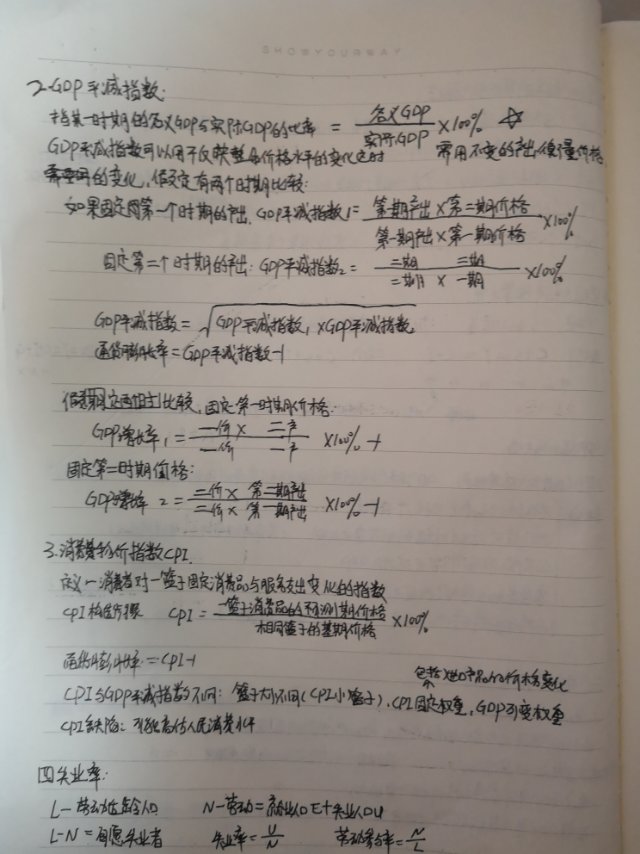 2.GDP平减指数:
指某一时期的名义GDP与实际GDP的比率 = 名义GDP/实际GDP ×100% ☆
GDP平减指数可以用于反映整体价格水平的变化 这时 需用不变的产出 衡量价格
的变化,假设定有两个时期比较:
如果固定第一个时期的产出,GDP平减指数1= 第一期产出×第二期价格/第一期产出×第一期价格 ×100%
固定第二个时期的产出:GDP平减指数2= 二期 二期/二期×一期 ×100%
GDP平减指数=√GDP平减指数1×GDP平减指数
通货膨胀率=GDP平减指数-1
比较,固定第一时期价格:
GDP增长率1= 一价× 二产/一价 一产 ×100%-1
固定第二时期价格:
GDP增长率2= 二价× 第二期产出/二价× 第一期产出 ×100%-1
3.消费物价指数CPI.
定义一消费者对一篮子固定消费品与服务支出变化的指数
CPI构造步骤 CPI= 一篮子消费品的 期价格/相同篮子的基期价格 ×100%
通货膨胀率=CPI-1
包括 价格变化
CPI与GDP平减指数不同:篮子大小不同(CPI小篮子).CPI固定权重,GDP可变权重
CPI缺陷:可能高估人民消费水平
四失业率:
L-劳动适龄人口 N-劳动=就业人口E+失业人口U
L-N=自愿失业者 失业率=U/N 劳动参与率=N/L